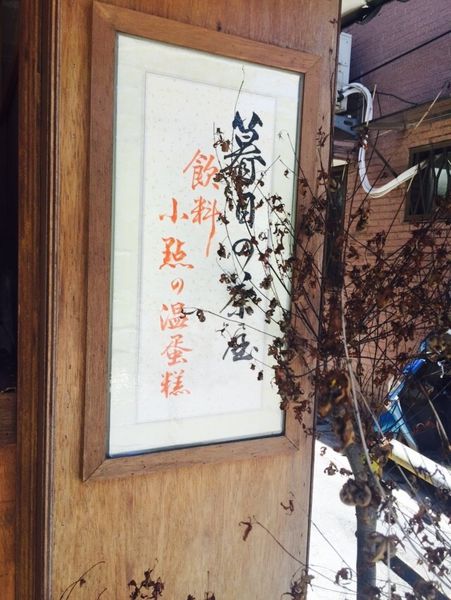 の茶屋
飲料
小點の温蛋糕